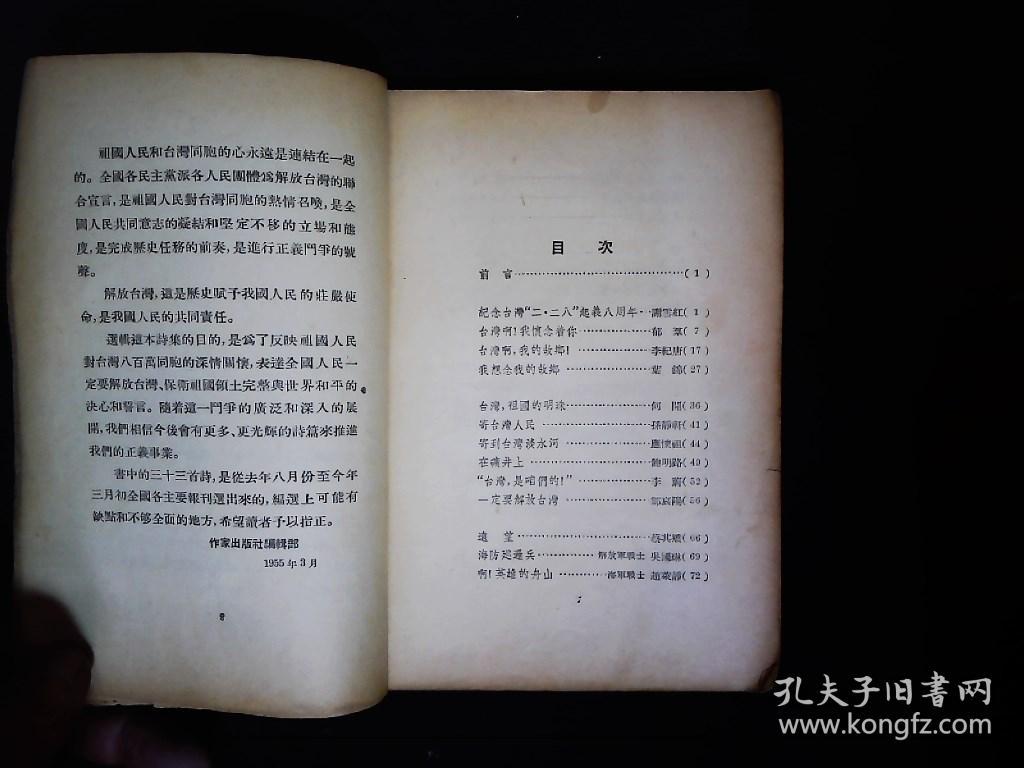 祖國人民和台灣同胞的心永遠是連結在一起
的。全國各民主黨派各人民團體爲解放台灣的聯
合宣言，是祖國人民對台灣同胞的熱情召喚，是全
國人民共同意志的凝結和堅定不移的立場和態
度，是完成歷史任務的前奏，是進行正義鬥爭的號
聲。
解放台灣，這是歷史賦予我國人民的莊嚴使
命，是我國人民的共同責任。
選輯這本詩集的目的，是爲了反映祖國人民
對台灣八百萬同胞的深情關懷，表達全國人民一
定要解放台灣、保衛祖國領土完整與世界和平的
決心和誓言。隨着這一鬥爭的廣泛和深入的展
開，我們相信今後會有更多、更光輝的詩篇來推進
我們的正義事業。
書中的三十三首詩，是從去年八月份至今年
三月初全國各主要報刊選出來的，編選上可能有
缺點和不够全面的地方，希望讀者予以指正。
作家出版社編輯部
1955年3月
目次
前言……(1)
紀念台灣“二·二八”起義八周年…謝雪紅(1)
台灣啊！我懷念着你……郁羣(7)
台灣啊，我的故鄉！……李紀唐(17)
我想念我的故鄉……葉錦(27)
台灣，祖國的明珠……何閒(36)
寄台灣人民……孫靜軒(41)
寄到台灣淡水河……應懷祖(44)
在礦井上……鮑明路(49)
“台灣，是咱們的！”……李(52)
一定要解放台灣……鄒荻陽(56)
遠望……蔡其矯(66)
海防巡邏兵……解放軍戰士 吳(69)
啊！英雄的舟山……海軍戰士 趙榮靜(72)
孔夫子旧書网
www.kongfz.com